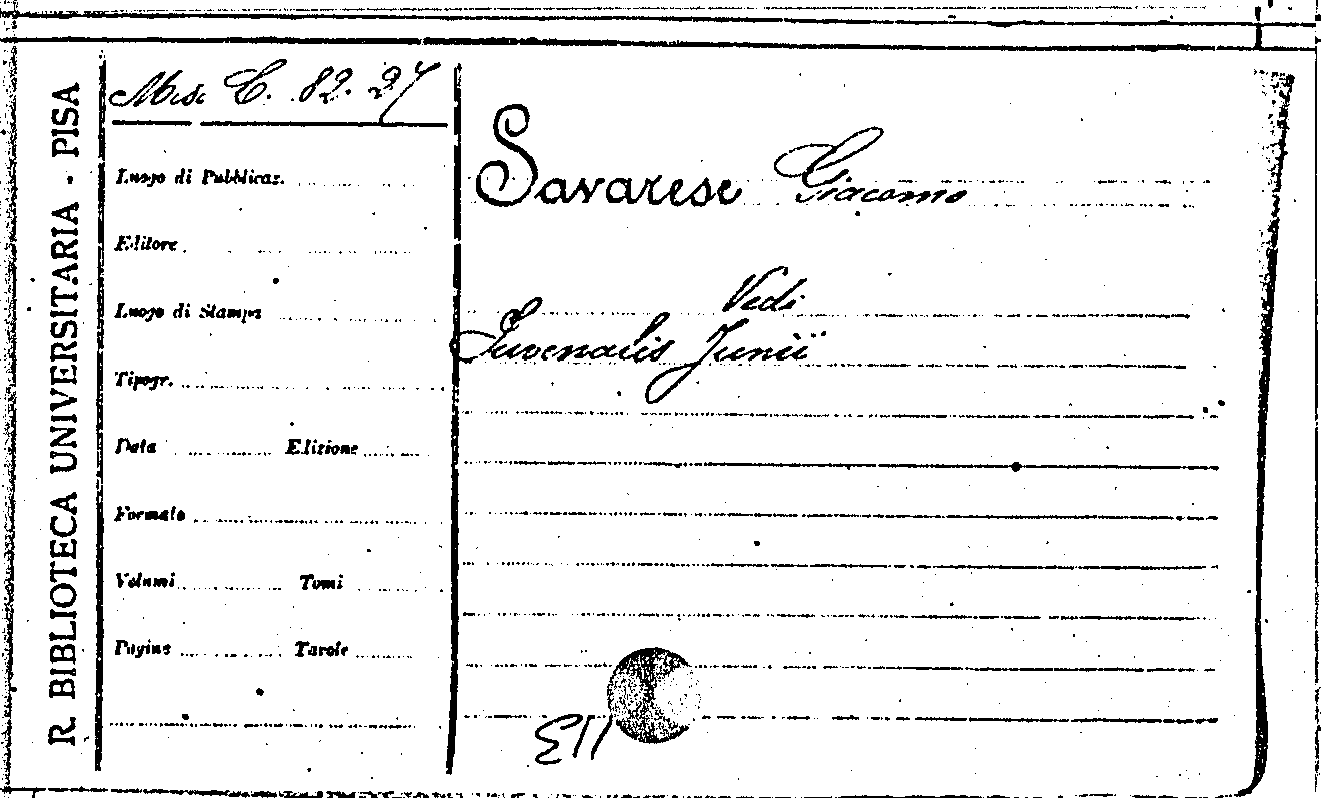 R. BIBLIOTECA UNIVERSITARIA - PISA
Misc C. 82. 27
Luogo di Pubblicaz.
Editore
Luogo di Stampa
Tipogr.
Data Edizione
Formato
Volumi Tomi
Pagine Tavole
Savarese Giacomo
Vedi
Juvenalis Junii
113